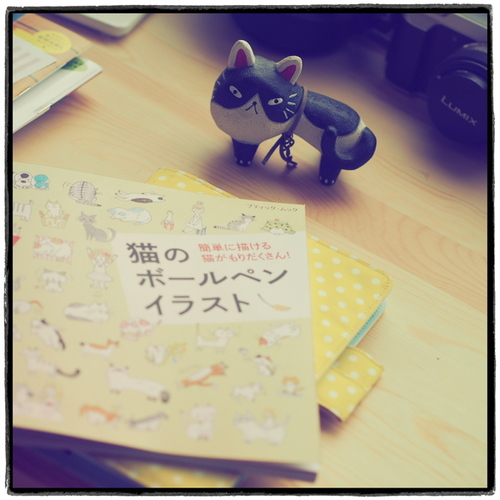 LUMIX
ブティック・ムック
猫の
簡単に描ける
猫がもりだくさん!
ボールペン
イラスト